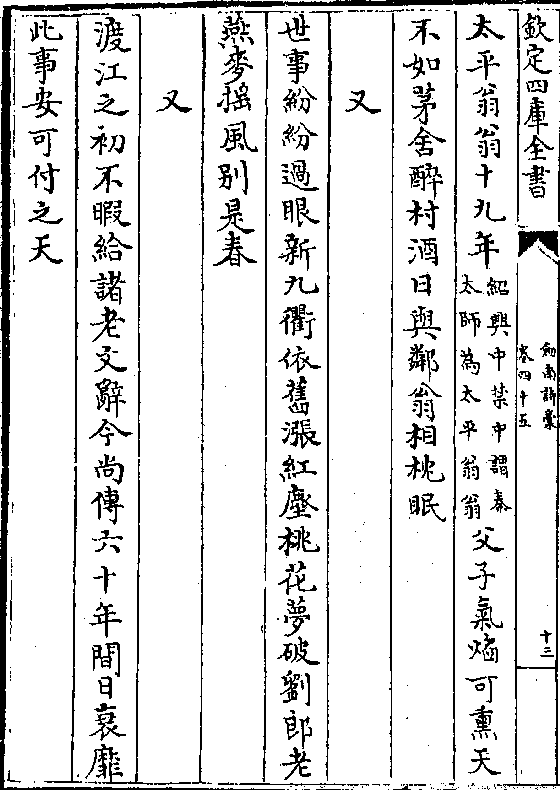 欽定四庫全書
劍南詩藁
卷四十五
十三
太平翁翁十九年紹興中禁中謂秦
太師為太平翁翁父子氣焰可熏天
不如茅舍醉村酒日與鄰翁相枕眠
又
世事紛紛過眼新九衢依舊漲紅塵桃花夢破劉郎老
燕麥揺風别是春
又
渡江之初不暇給諸老文辭今尚傳六十年間日衰靡
此事安可付之天